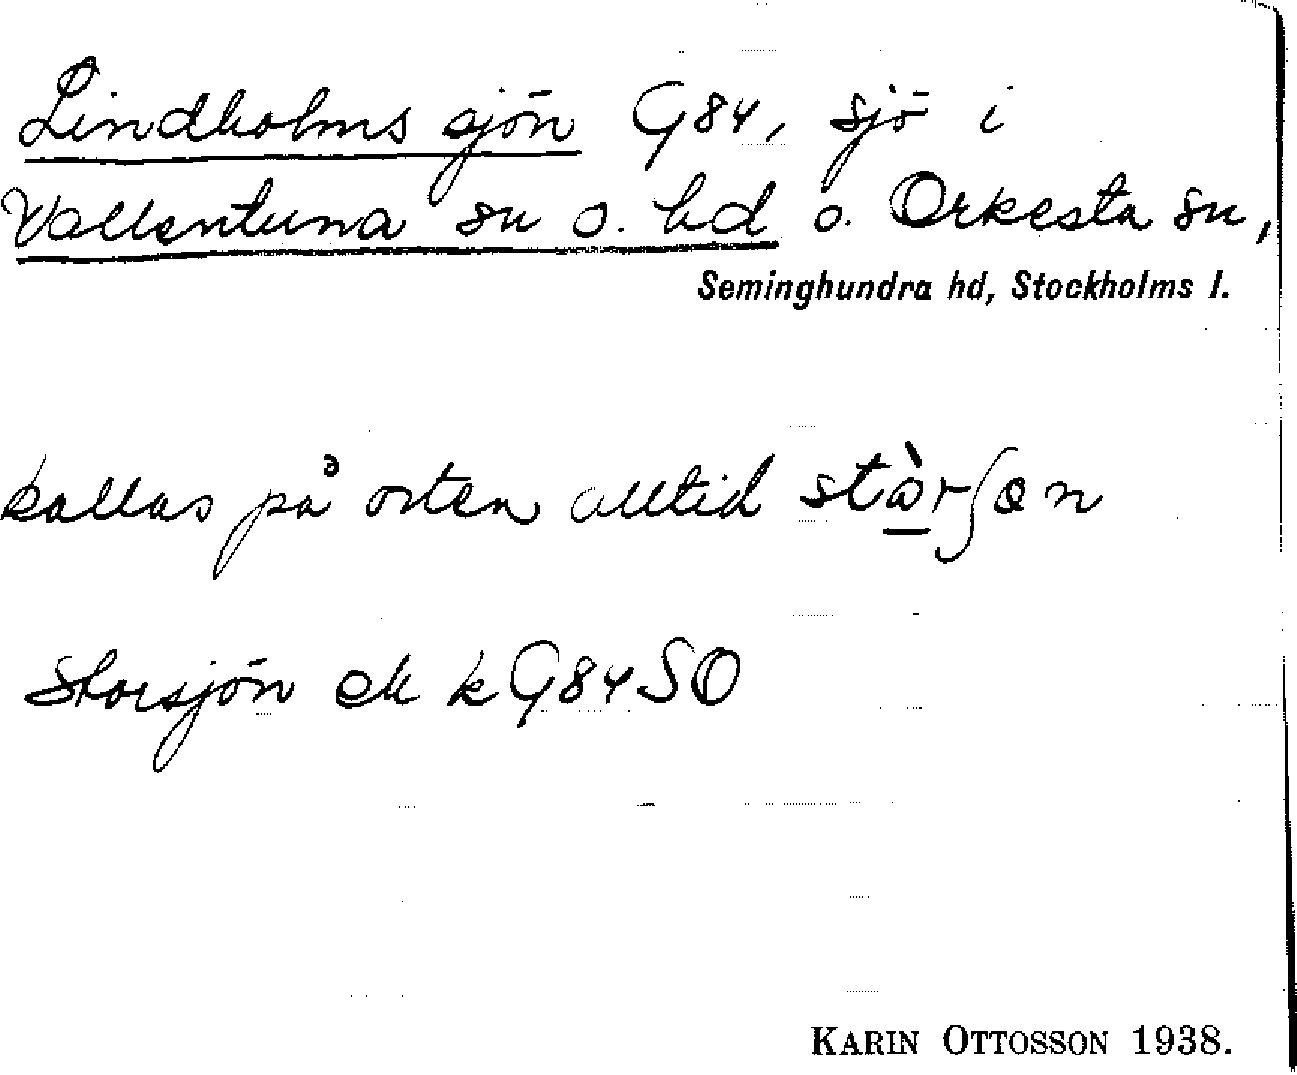 Lindholmssjön G84, sjö i
Vallentuna sn o. hd o. Orkesta sn,
Seminghundra hd, Stockholms l.
kallas på orten alltid
Storsjön ek k G84SO
KARIN OTTOSSON 1938.